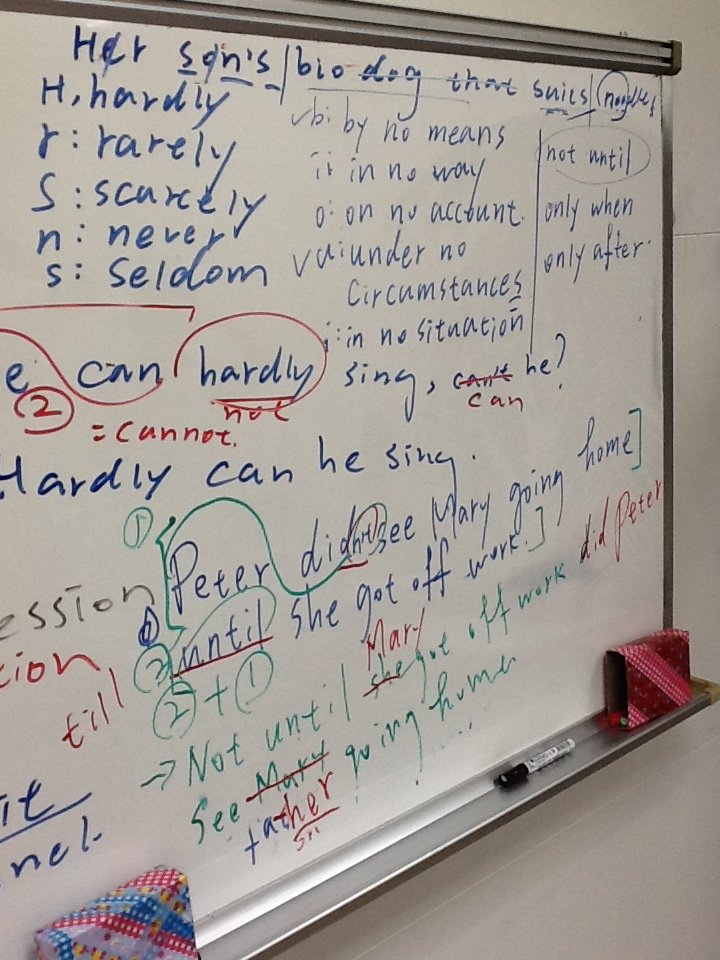 Her son's / bio dog that suits /
H, hardly
r: rarely
S: scarcely
n: never
s: seldom
b: by no means
i: in no way
o: on no account.
under no
circumstances
i: in no situation
not until
only when
only after.
e can hardly sing, can't he?
② not can
= cannot.
Hardly can he sing.
① Peter didn't see Mary going home]
ession
② until she got off work.]
tion
till
② + ①
Mary
→ Not until she got off work did Peter
see Mary going home
her
it
nel.